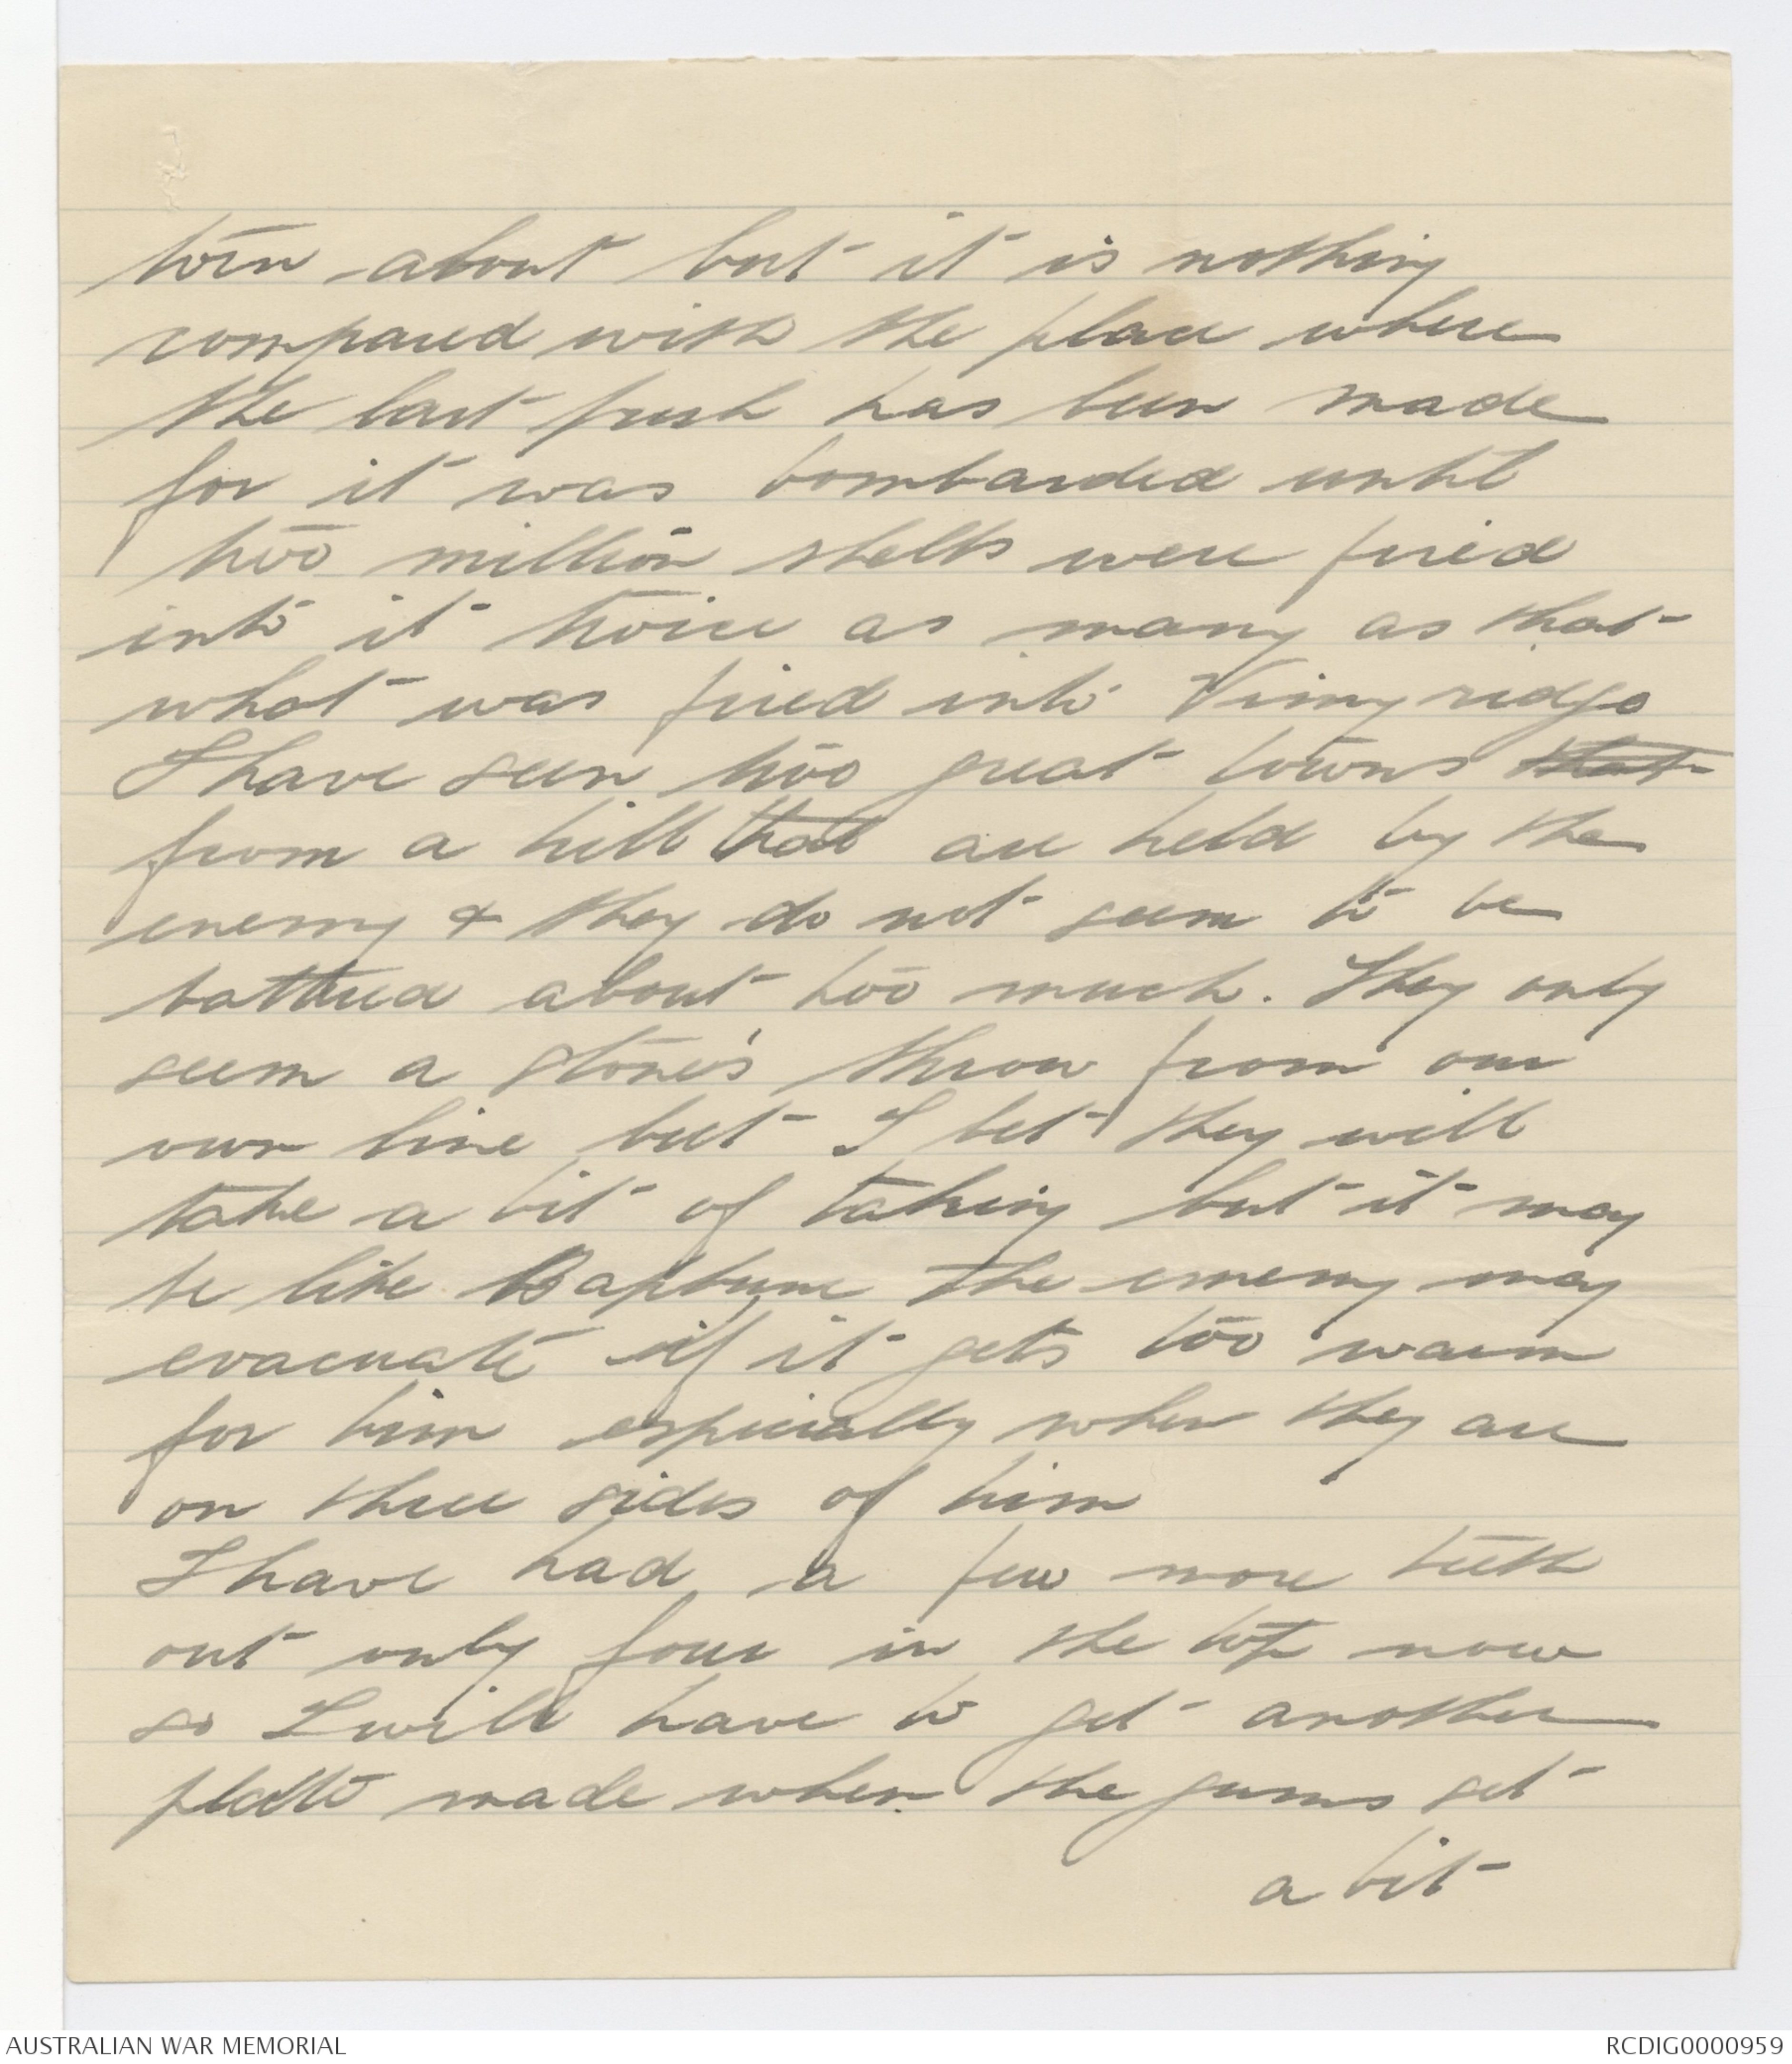 torn about but it is nothing
compared with the place where
the last push has been made
for it was bombarded until
two million shells were fired
into it twice as many as that
what was fired into Vimy ridge
I have seen two great towns that
from a hill that are held by the
enemy & they do not seem to be
battered about too much. They only
seem a stone's throw from our
own line but I bet they will
take a bit of taking but it may
be like Bapaume the enemy may
evacuate if it gets too warm
for him especially when they are
on three sides of him
I have had a few more teeth
out only four in the top now
so I will have to get another
plate made when the gums set
a bit
AUSTRALIAN WAR MEMORIAL
RCDIG0000959